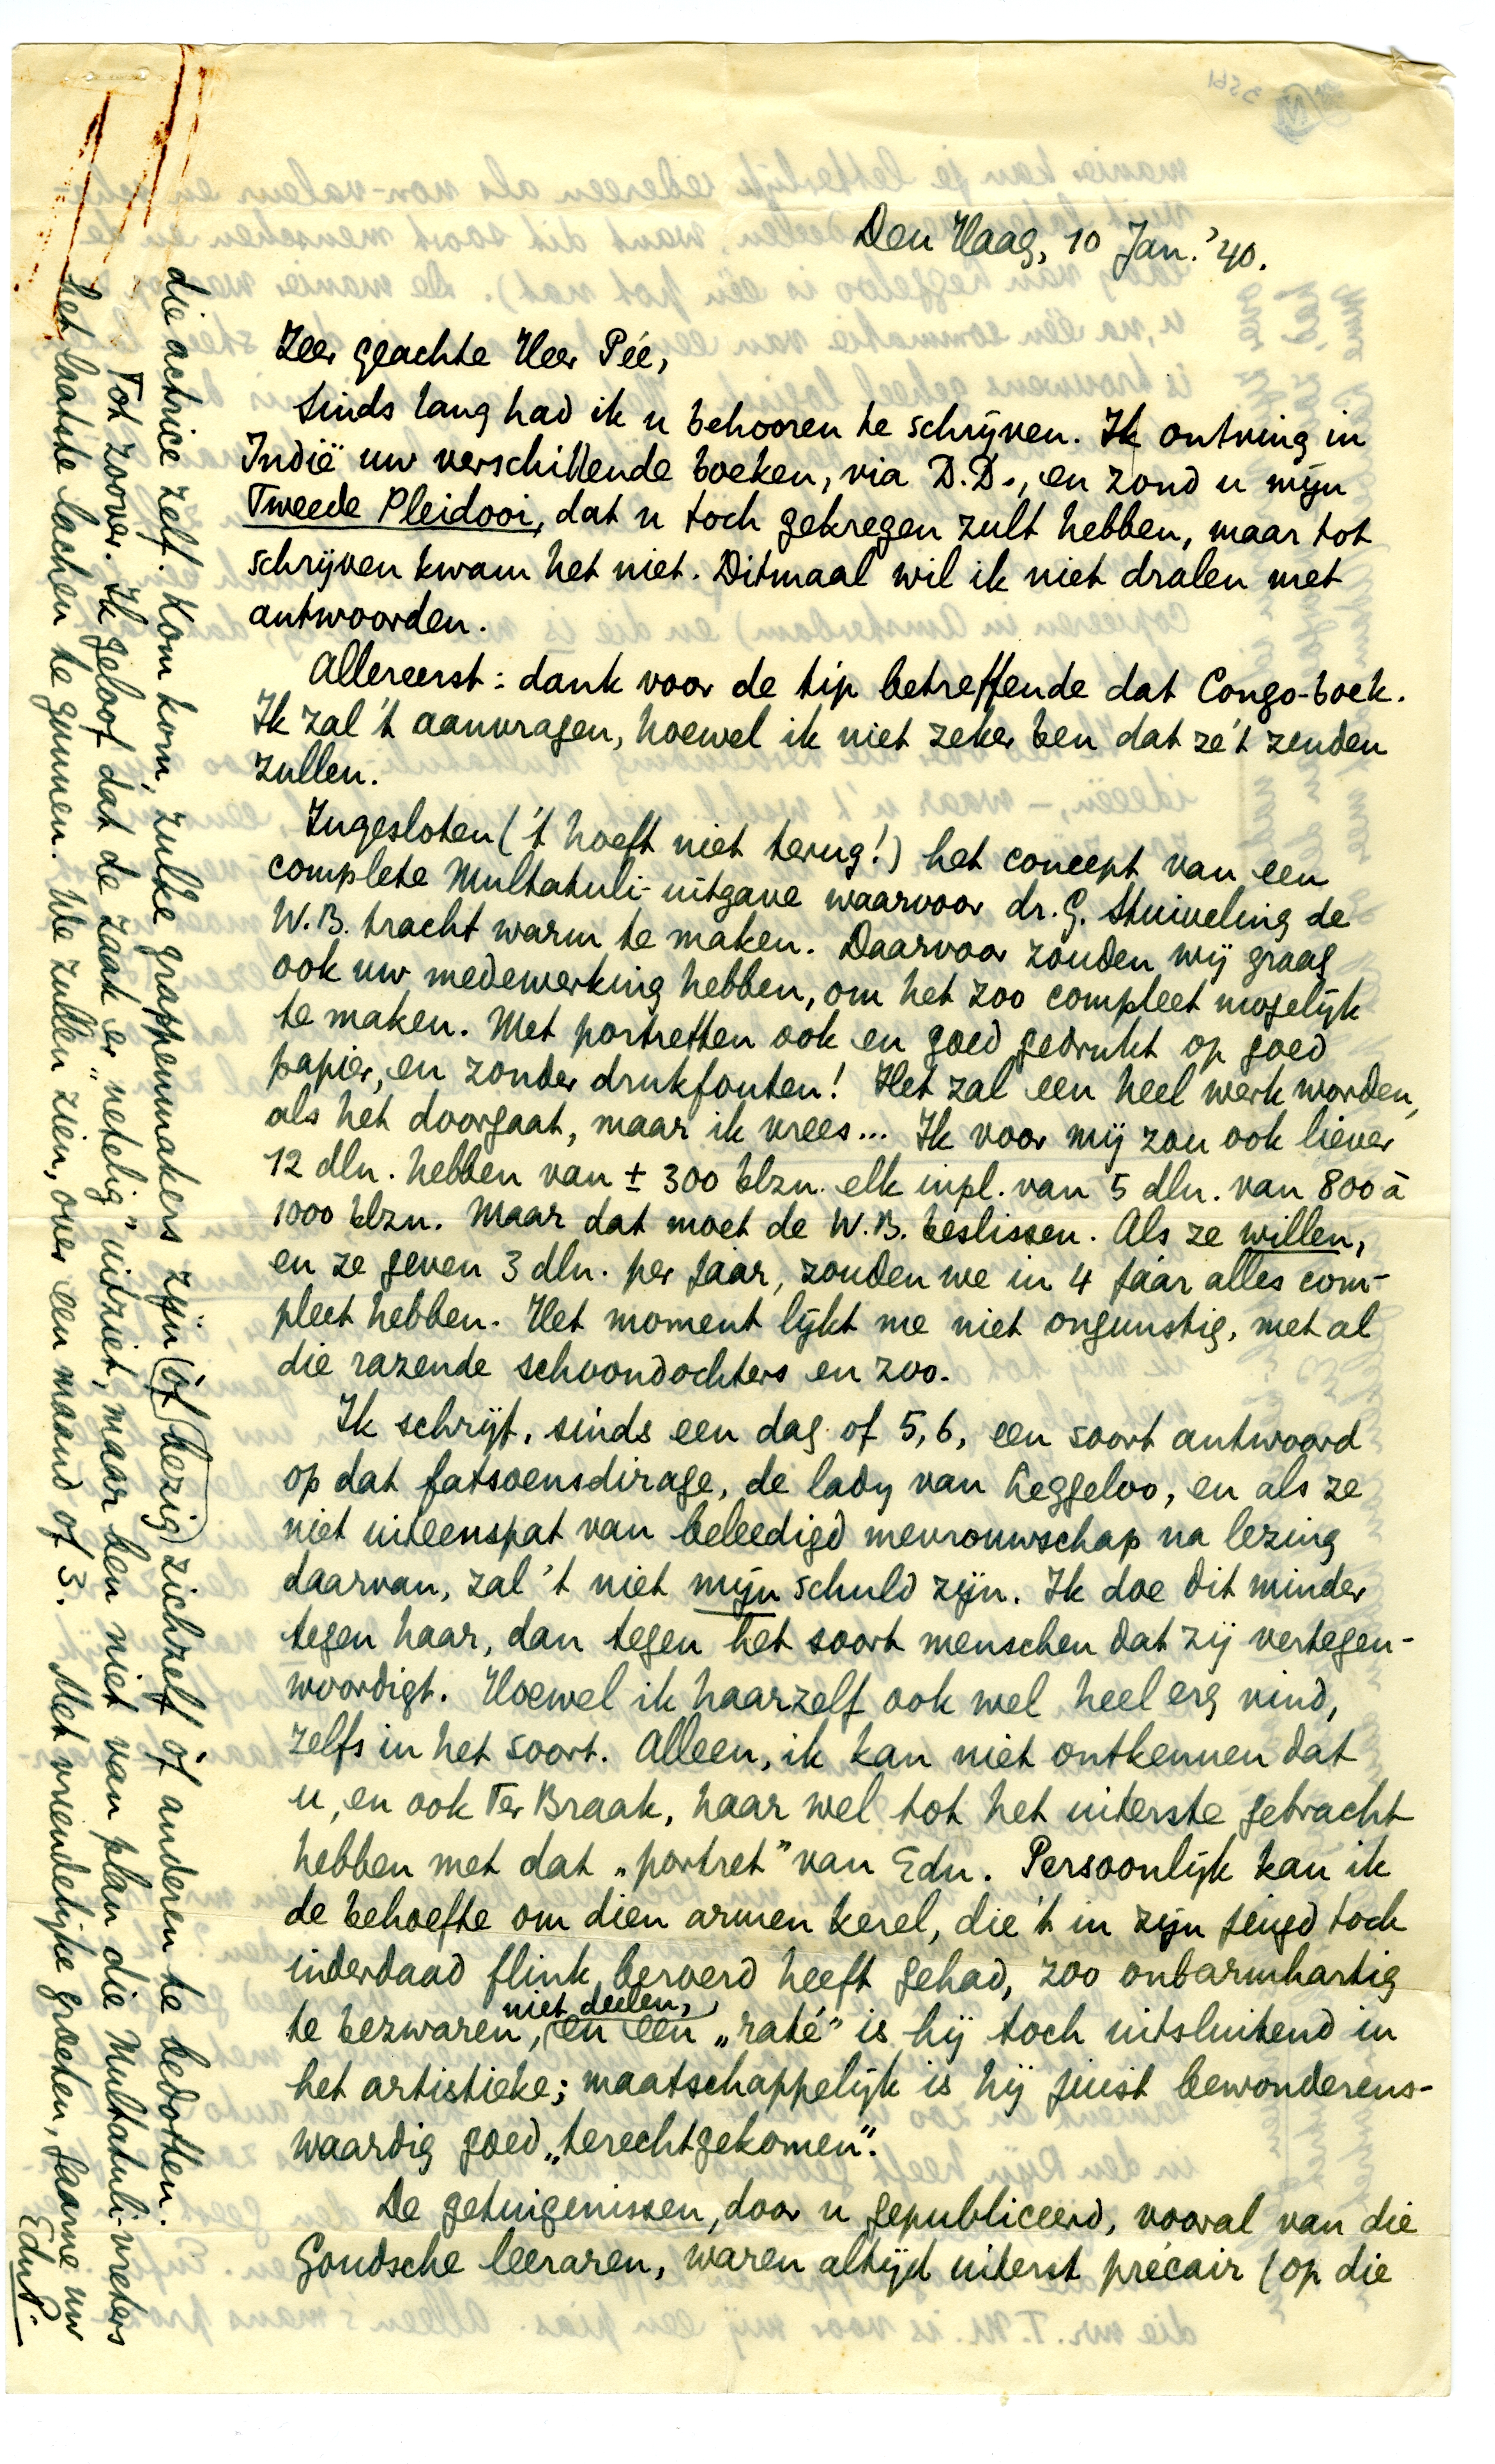 Den Haag, 10 Jan. '40.
Zeer geachte Heer Pée,
Sinds lang had ik u behooren te schrijven. Ik ontving in
Indië uw verschillende boeken, via D.D., en zond u mijn
Tweede Pleidooi, dat u toch gekregen zult hebben, maar tot
schrijven kwam het niet. Ditmaal wil ik niet dralen met
antwoorden.
Allereerst: dank voor de tip betreffende dat Congo-boek.
Ik zal 't aanvragen, hoewel ik niet zeker ben dat ze 't zenden
zullen.
Ingesloten ('t hoeft niet terug!) het concept van een
complete Multatuli-uitgave waarvoor dr. G. Stuiveling de
W.B. tracht warm te maken. Daarvoor zouden wij graag
ook uw medewerking hebben, om het zoo compleet mogelijk
te maken. Met portretten ook en goed gedrukt op goed
papier, en zonder drukfouten! Het zal een heel werk worden,
als het doorgaat, maar ik vrees... Ik voor mij zou ook liever
12 dln. hebben van ± 300 blzn. elk inpl. van 5 dln. van 800 à
1000 blzn. Maar dat moet de W.B. beslissen. Als ze willen,
en ze geven 3 dln. per jaar, zouden we in 4 jaar alles com-
pleet hebben. Het moment lijkt me niet ongunstig, met al
die razende schoondochters en zoo.
Ik schrijf, sinds een dag of 5, 6, een soort antwoord
op dat fatsoensdirage, de lady van Leggeloo, en als ze
niet uiteenspat van beleedigd mevrouwschap na lezing
daarvan, zal 't niet mijn schuld zijn. Ik doe dit minder
tegen haar, dan tegen het soort menschen dat zij vertegen-
woordigt. Hoewel ik haarzelf ook wel heel erg vind,
zelfs in het soort. Alleen, ik kan niet ontkennen dat
u, en ook Ter Braak, haar wel tot het uiterste gebracht
hebben met dat „portret" van Edu. Persoonlijk kan ik
de behoefte om dien armen kerel, die 't in zijn jeugd toch
inderdaad flink beroerd heeft gehad, zoo onbarmhartig
te bezwaren, niet deelen, en een „raté" is hij toch uitsluitend in
het artistieke; maatschappelijk is hij juist bewonderens-
waardig goed „terechtgekomen".
De getuigenissen, door u gepubliceerd, vooral van die
Goudsche leeraren, waren altijd uiterst précair (op die
die actrice zelf. Kom kom, zulke grappenmakers zijn (òf) bezig) zichzelf òf anderen te bedotten.
Tot zoover. Ik geloof dat de zaak er „netelig" uitziet, maar ben niet van plan die Multatuli-vreters
het laatste lachen te gunnen. We zullen zien, over een maand of 3. Met vriendelijke groeten, gaarne uw
EduP.